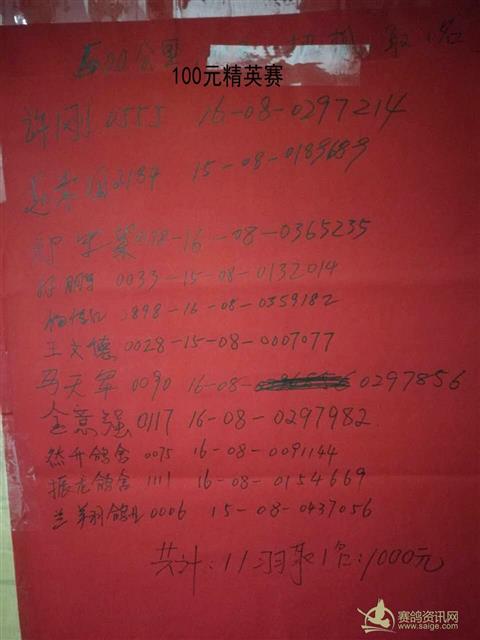 500公里 取1名
100元精英赛
许刚 0555 16-08-0297214
赵 3184 15-08-0189689
郑 16-08-0365235
鹏 0033-15-08-0132014
杨 3898-16-08-0359182
王文德 0028-15-08-0007077
马天军 0090 16-08- 0297856
金意强 0117 16-08-0297982
然升鸽舍 0075 16-08-0091144
振龙鸽舍 1111 16-08-0154669
兰翔鸽业 0006 15-08-0437056
共计:11羽取1名:1000元
赛鸽资讯网
www.saige.com